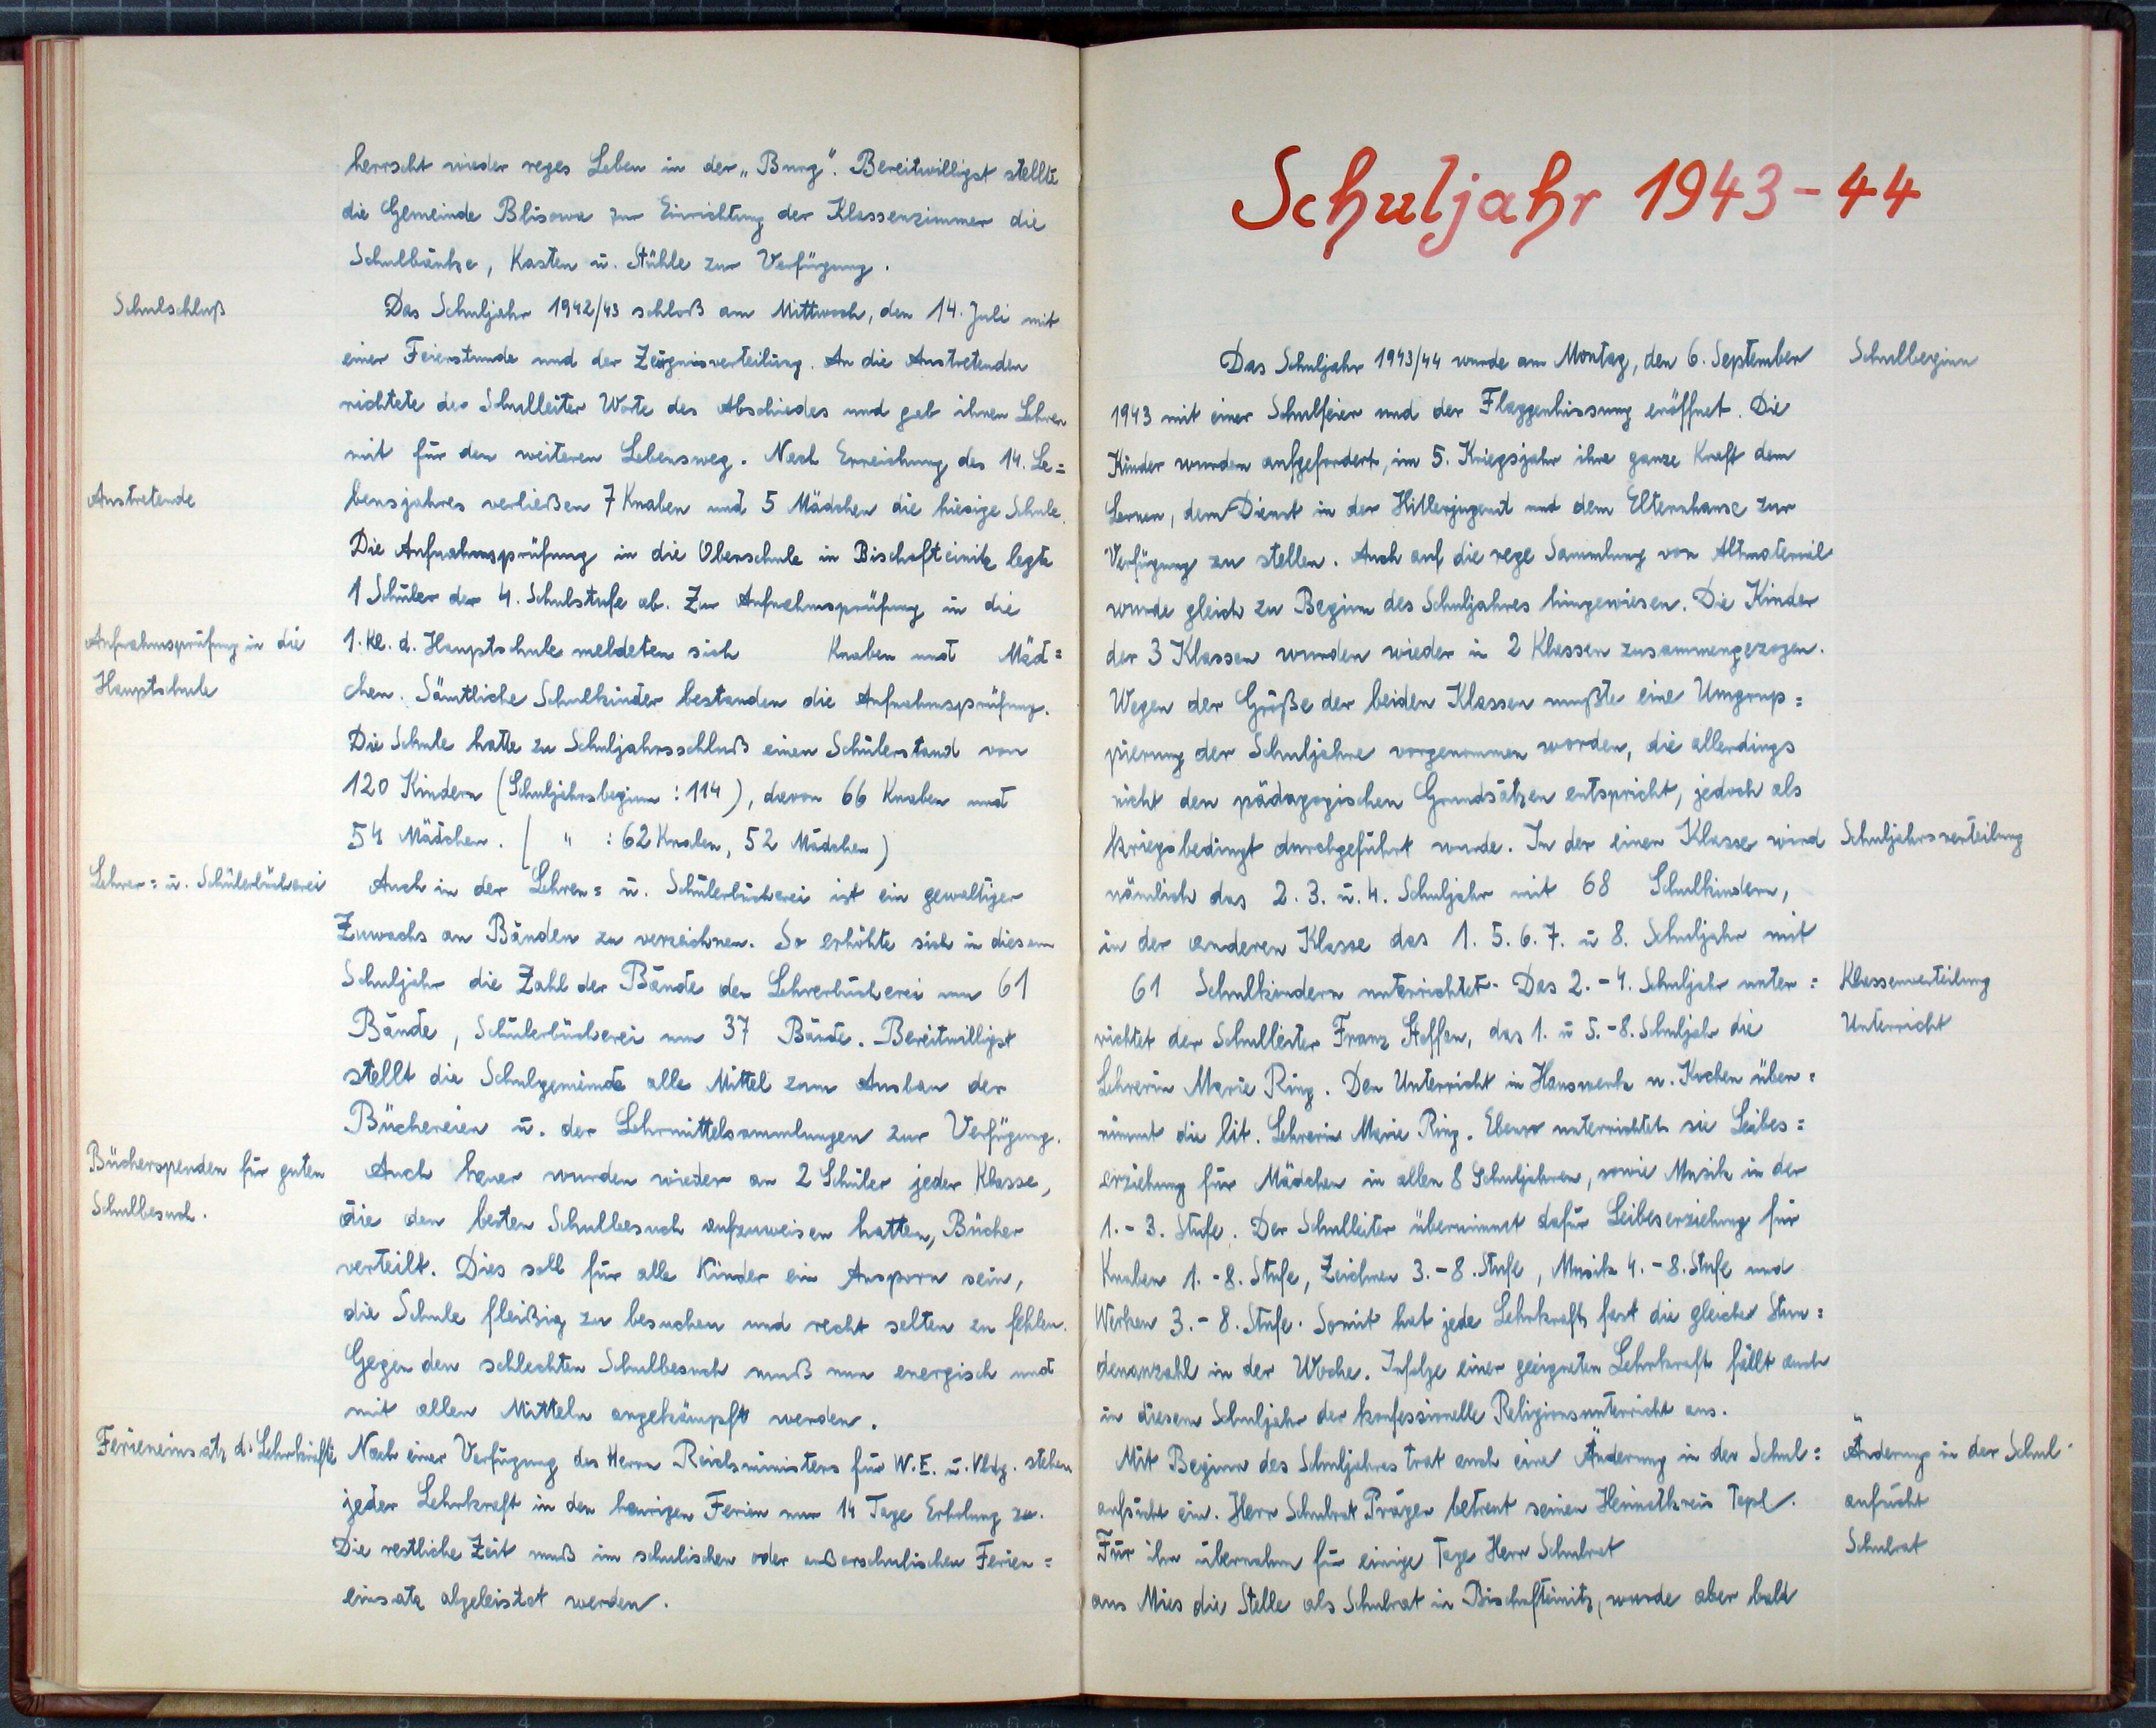 herrscht wieder reges Leben in der „Burg". Bereitwilligst stellte
die Gemeinde Blisowa zur Einrichtung der Klassenzimmer die
Schulbänke, Kasten ū. Stühle zur Verfügung.
Schulschluß
Das Schuljahr 1942/43 schloß am Mittwoch, den 14. Juli mit
einer Feierstunde und der Zeugnisverteilung. An die Austretenden
richtete der Schulleiter Worte des Abschiedes und gab ihnen Lehren
mit für den weiteren Lebensweg. Nach Erreichung des 14. Le=
Austretende
bensjahres verließen 7 Knaben und 5 Mädchen die hiesige Schule.
Die Aufnahmsprüfung in die Oberschule in Bischofteinitz legte
1 Schüler der 4. Schulstufe ab. Zur Aufnahmsprüfung in die
Aufnahmsprüfung in die
Hauptschule
1. Kl. d. Hauptschule meldeten sich Knaben und Mäd=
chen. Sämtliche Schulkinder bestanden die Aufnahmsprüfung.
Die Schule hatte zu Schuljahrsschluß einen Schülerstand von
120 Kindern (Schuljahrsbeginn : 114), davon 66 Knaben und
54 Mädchen. ( " : 62 Knaben, 52 Mädchen)
Lehrer= ū. Schülerbücherei
Auch in der Lehrer= ū. Schülerbücherei ist ein gewaltiger
Zuwachs an Bänden zu verzeichnen. So erhöhte sich in diesem
Schuljahr die Zahl der Bände der Lehrerbücherei um 61
Bände, Schülerbücherei um 37 Bände. Bereitwilligst
stellt die Schulgemeinde alle Mittel zum Ausbau der
Büchereien ū. der Lehrmittelsammlungen zur Verfügung.
Bücherspenden für guten
Schulbesuch.
Auch heuer wurden wieder an 2 Schüler jeder Klasse,
die den besten Schulbesuch aufzuweisen hatten, Bücher
verteilt. Dies soll für alle Kinder ein Ansporn sein,
die Schule fleißig zu besuchen und recht selten zu fehlen.
Gegen den schlechten Schulbesuch muß nun energisch und
mit allen Mitteln angekämpft werden.
Ferieneinsatz d. Lehrkräfte
Nach einer Verfügung des Herrn Reichsministers für W.E. ū. Vbdg. stehen
jeder Lehrkraft in den heurigen Ferien nur 14 Tage Erholung zu.
Die restliche Zeit muß im schulischen oder außerschulischen Ferien=
einsatz abgeleistet werden.
Schuljahr 1943-44
Das Schuljahr 1943/44 wurde am Montag, den 6. September
Schulbeginn
1943 mit einer Schulfeier und der Flaggenhissung eröffnet. Die
Kinder wurden aufgefordert, im 5. Kriegsjahr ihre ganze Kraft dem
Lernen, dem Dienst in der Hitlerjugend und dem Elternhause zur
Verfügung zu stellen. Auch auf die rege Sammlung von Altmaterial
wurde gleich zu Beginn des Schuljahres hingewiesen. Die Kinder
der 3 Klassen wurden wieder in 2 Klassen zusammengezogen.
Wegen der Größe der beiden Klassen mußte eine Umgrup=
pierung der Schuljahre vorgenommen worden, die allerdings
nicht den pädagogischen Grundsätzen entspricht, jedoch als
kriegsbedingt durchgeführt wurde. In der einen Klasse wird
Schuljahrsverteilung
nämlich das 2. 3. ū. 4. Schuljahr mit 68 Schulkindern,
in der anderen Klasse das 1. 5. 6. 7. ū 8. Schuljahr mit
61 Schulkindern unterrichtet. Das 2.-4. Schuljahr unter=
Klassenverteilung
Unterricht
richtet der Schulleiter Franz Steffan, das 1. ū 5.-8. Schuljahr die
Lehrerin Marie Ring. Den Unterricht in Hauswerk u. Kochen über=
nimmt die lit. Lehrerin Marie Ring. Ebenso unterrichtet sie Leibes=
erziehung für Mädchen in allen 8 Schuljahren, sowie Musik in der
1.-3. Stufe. Der Schulleiter übernimmt dafür Leibeserziehung für
Knaben 1.-8. Stufe, Zeichnen 3.-8. Stufe, Musik 4.-8. Stufe und
Werken 3.-8. Stufe. Somit hat jede Lehrkraft fast die gleiche Stun=
denanzahl in der Woche. Infolge einer geeigneten Lehrkraft fällt auch
in diesem Schuljahr der konfessionelle Religionsunterricht aus.
Mit Beginn des Schuljahres trat auch eine Änderung in der Schul=
Änderung in der Schul-
aufsicht
Schulrat
aufsicht ein. Herr Schulrat Präger betreut seinen Heimatkreis Tepl.
Für ihn übernahm für einige Tage Herr Schulrat
aus Mies die Stelle als Schulrat in Bischofteinitz, wurde aber bald